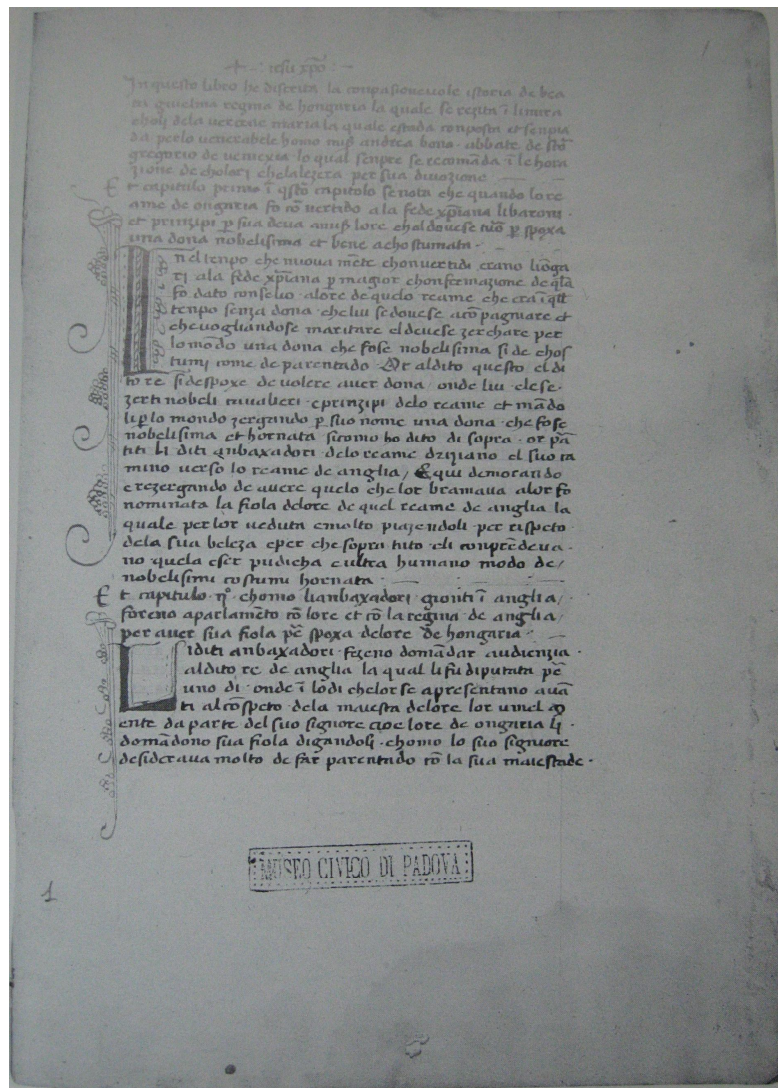 + · iesu xp̄o · –
In questo libro he discrita la conpasionevole istoria de bea
ta guielma regina de hongaria la quale se rezita i lmira
choli dela vercene maria la quale estada conposta et scripta
da perlo venerabele homo mis̄ andrea bono · abbate de sc̄to
gregorio de veniexia lo qual senpre se recomāda ī le hora
zione de choloro chelalezera per sua divozione
Et capitulo primo ī q̄sto capitolo se nota che quando lo re
ame de ongaria fo cōvertido a la fede xp̄iana li baroni ·
et prinzipi p̄ sua deva lore chel dovese tuor p̄ spoxa
una dona nobelisima et bene achostumata ·
In el tenpo che nuova mēte chonvertidi erano li ōga
ri a la fede xp̄iana p̄ magior chonfermazione de q̄la
fo dato conseio · alore de quelo reame che era ī q̄l
tenpo senza dona · che lui se dovese acōpagniare et
che vogliandose maritare el devese zerchare per
lo mōdo una dona che fose nobelisima si de chos
tumi come de parentado · Or aldito questo el di
to re si despoxe de volere aver dona · onde lui elese ·
zerti nobeli cavalieri · e prinzipi delo reame et mādo
li p̄ lo mondo zergando p̄ suo nome una dona · che fose
nobelisima et hornata sicomo ho dito di sopra · or pā
titi li diti anbaxadori · delo reame dzizano el suo ca
mino verso lo reame de anglia / E qui demorando
e rezergando de avere quelo che lor bramava alor fo
nominata la fiola delore de quel reame de anglia la
quale per lor veduta e molto piazendoli · per rispeto
dela sua beleza e per che sopra tuto eli conprēdeva ·
no quela eser pudicha e ultra humano modo de /
nobelisimi costumi hornata ·
Et capitulo · ij° chomo li anbaxadori gionti ī anglia /
foreno a parlamēto cō lore et cō la regina de anglia /
per aver sua fiola pē spoxa delore de hongaria ·
I diti anbaxadori · fezeno domādar audienzia ·
al dito re de anglia la qual li fu diputata pē
uno di · onde ī lo di che lor se apresentano avā
ti al cōspeto dela maiesta delore lor umelm
ente da parte del suo signore zioe lore de ongaria li ·
domādono sua fiola digandoli · chomo lo suo signore
desiderava molto de far parentado cō la sua maiestade ·
MUSEO CIVICO DI PADOVA
1